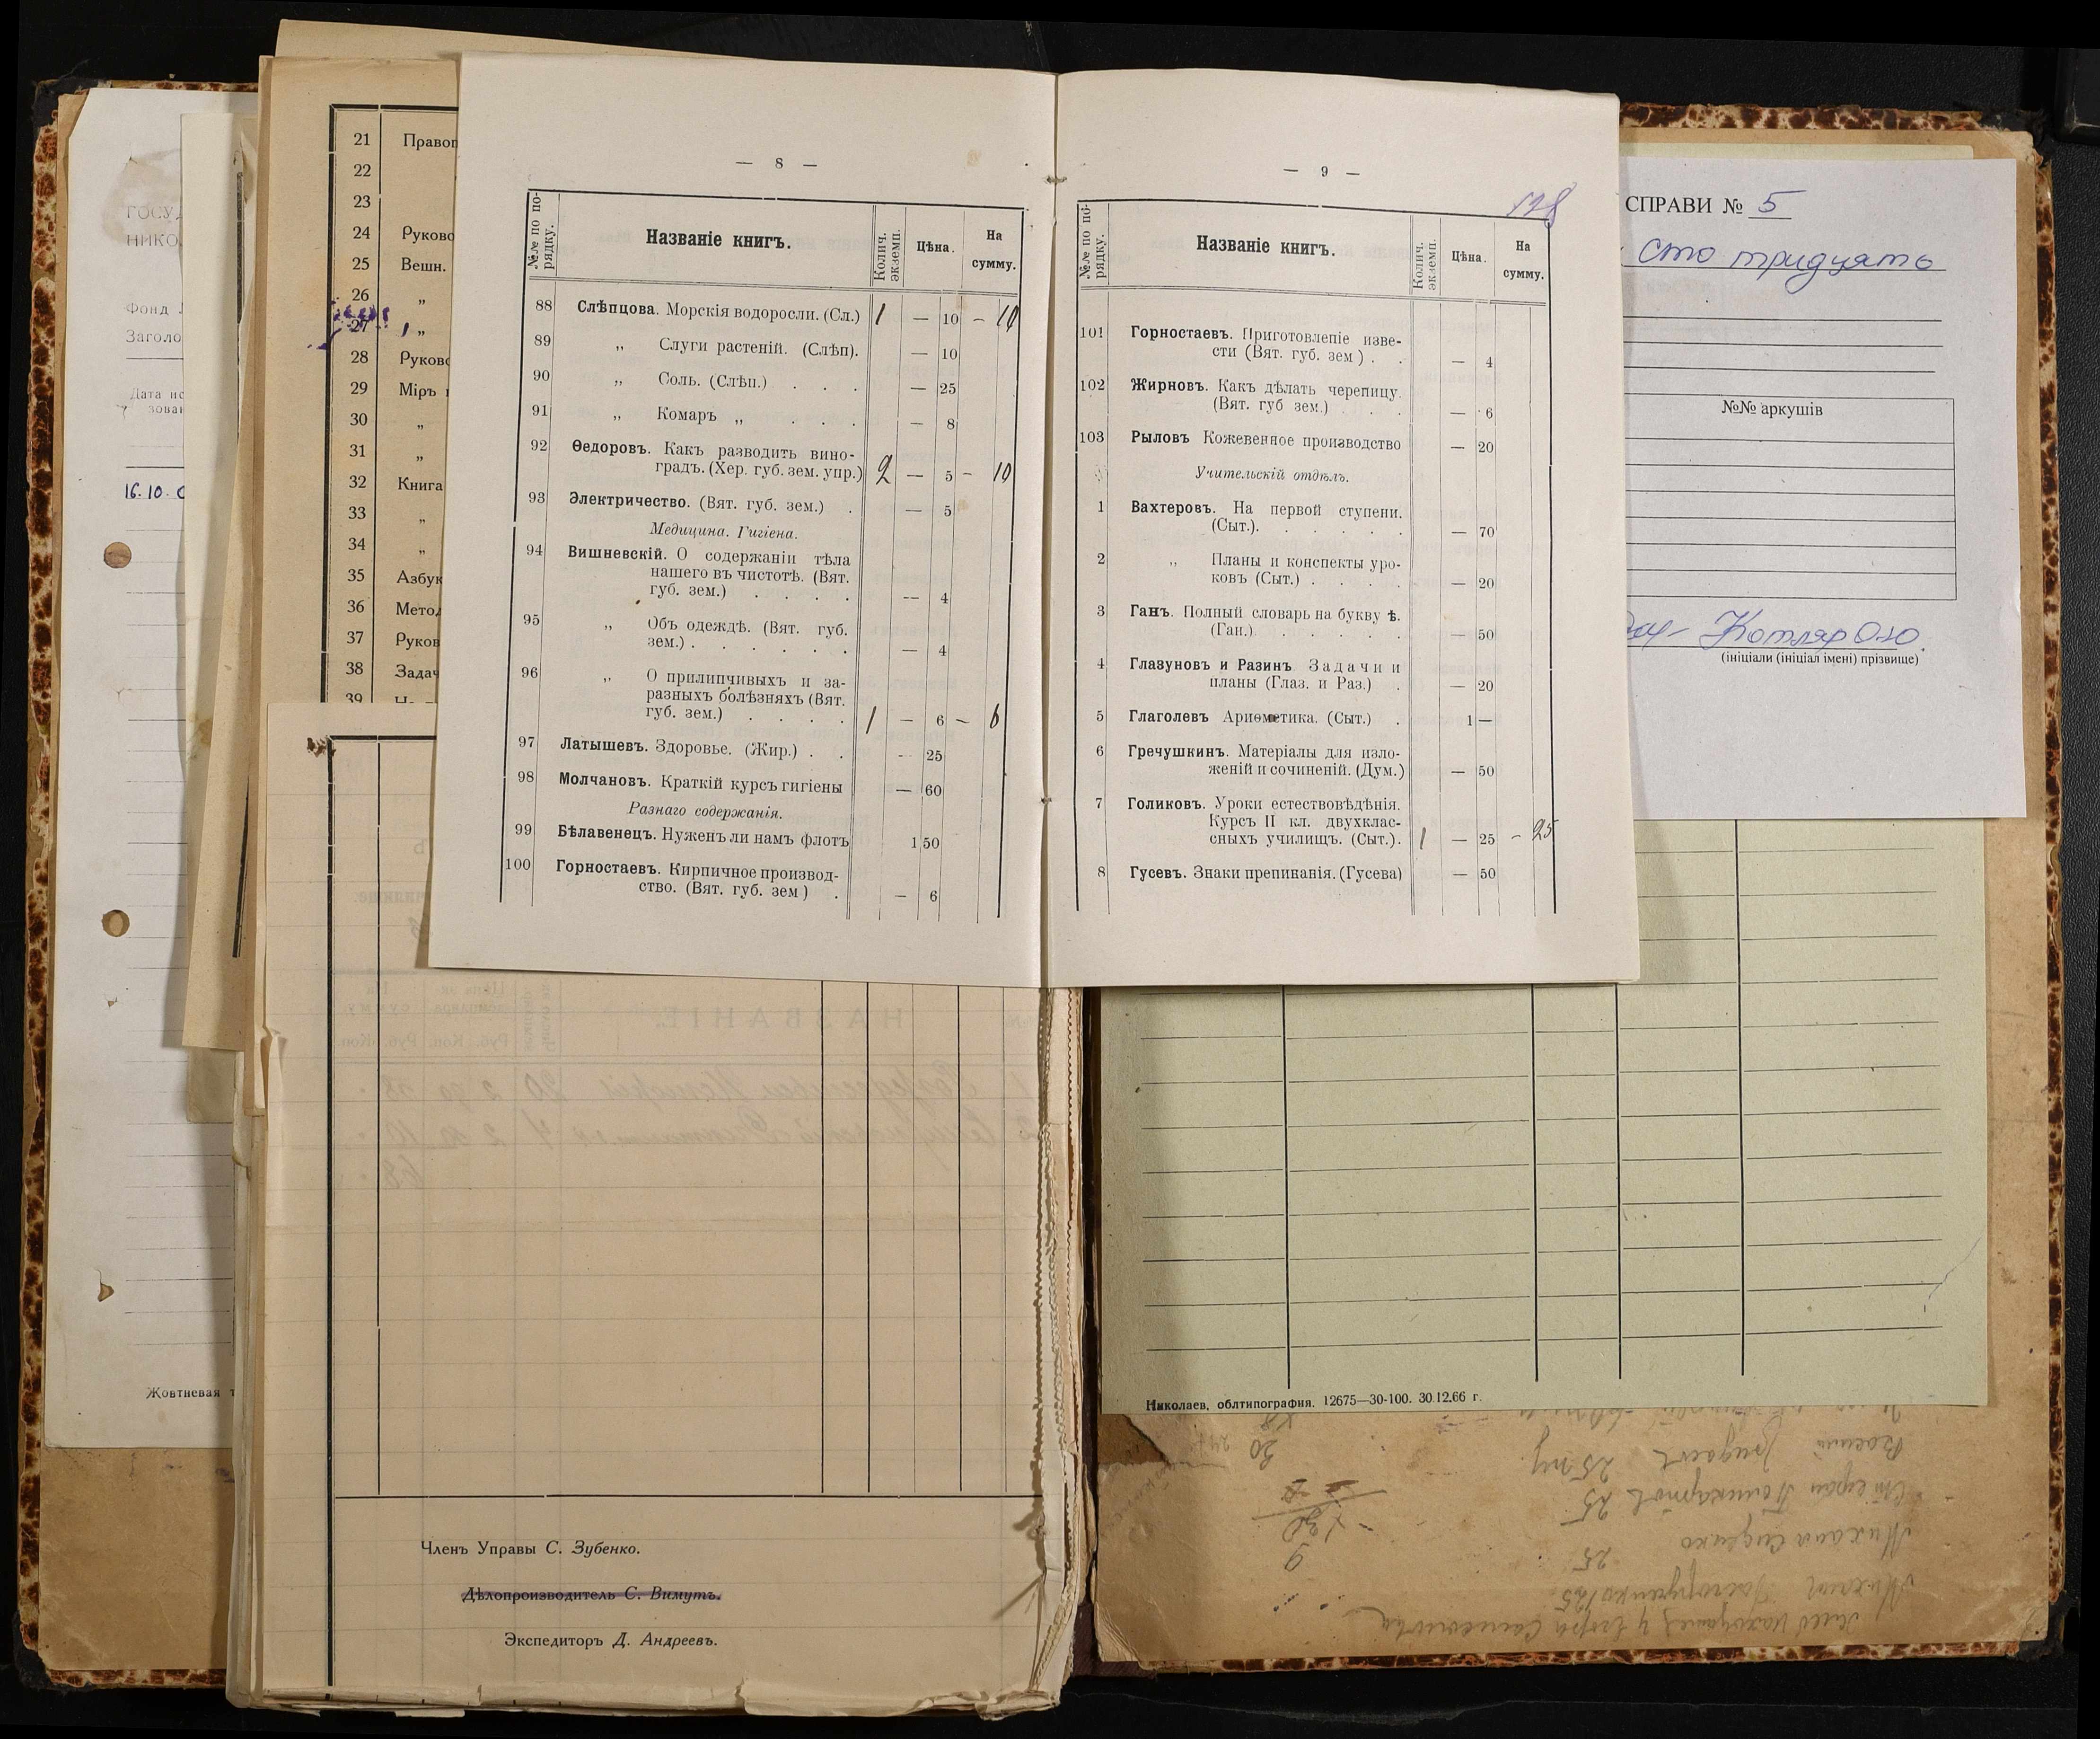 — 8 —
№№ по по-
рядку.
Названіе книгъ.
Колич.
экземп.
Цѣна.
На
сумму.
88 Слѣпцова. Морскія водоросли. (Сл.) 1 — 10 – 10
89 „ Слуги растеній. (Слѣп). — 10
90 „ Соль. (Слѣп.) . . . — 25
91 „ Комаръ „ . . . — 8
92 Ѳедоровъ. Какъ разводить вино-
градъ. (Хер. губ. зем. упр.) 2 — 5 – 10
93 Электричество. (Вят. губ. зем.) . — 5
Медицина. Гигіена.
94 Вишневскій. О содержаніи тѣла
нашего въ чистотѣ. (Вят.
губ. зем.) . . . . — 4
95 „ Объ одеждѣ. (Вят. губ.
зем.) . . . . . . — 4
96 „ О прилипчивыхъ и за-
разныхъ болѣзняхъ (Вят.
губ. зем.) . . . . 1 — 6 – 6
97 Латышевъ. Здоровье. (Жир.) . . — 25
98 Молчановъ. Краткій курсъ гигіены — 60
Разнаго содержанія.
99 Бѣлавенецъ. Нуженъ ли намъ флотъ 1 50
100 Горностаевъ. Кирпичное производ-
ство. (Вят. губ. зем ) . — 6
— 9 —
128
№№ по по-
рядку.
Названіе книгъ.
Колич.
экземп.
Цѣна.
На
сумму.
101 Горностаевъ. Приготовленіе изве-
сти (Вят. губ. зем ) . . — 4
102 Жирновъ. Какъ дѣлать черепицу.
(Вят. губ зем.) . . . — 6
103 Рыловъ Кожевенное производство — 20
Учительскій отдѣлъ.
1 Вахтеровъ. На первой ступени.
(Сыт.). . . . . . — 70
2 „ Планы и конспекты уро-
ковъ (Сыт.) . . . . — 20
3 Ганъ. Полный словарь на букву ѣ.
(Ган.) . . . . . — 50
4 Глазуновъ и Разинъ Задачи и
планы (Глаз. и Раз.) . — 20
5 Глаголевъ Ариѳметика. (Сыт.) . 1 —
6 Гречушкинъ. Матеріалы для изло-
женій и сочиненій. (Дум.) — 50
7 Голиковъ. Уроки естествовѣдѣнія.
Курсъ II кл. двухклас-
сныхъ училищъ. (Сыт.). 1 — 25 – 25
8 Гусевъ. Знаки препинанія. (Гусева) — 50
21 Правоп
22
23
24 Руково
25 Вешн.
26 „
27 „
28 Руково
29 Міръ
30 „
31 „
32 Книга
33 „
34 „
35 Азбук
36 Метод
37 Руков
38 Задач
39
ГОСУД
НИКО
Фонд
Заголо
Дата ис
зован
16.10.
Жовтневая
Членъ Управы С. Зубенко.
Дѣлопроизводитель С. Вимутъ.
Экспедиторъ Д. Андреевъ.
СПРАВИ № 5
сто тридцять
№№ аркушів
Котляр О.Ю.
(ініціали (ініціал імені) прізвище)
Николаев, облтипография. 12675—30-100. 30.12.66 г.